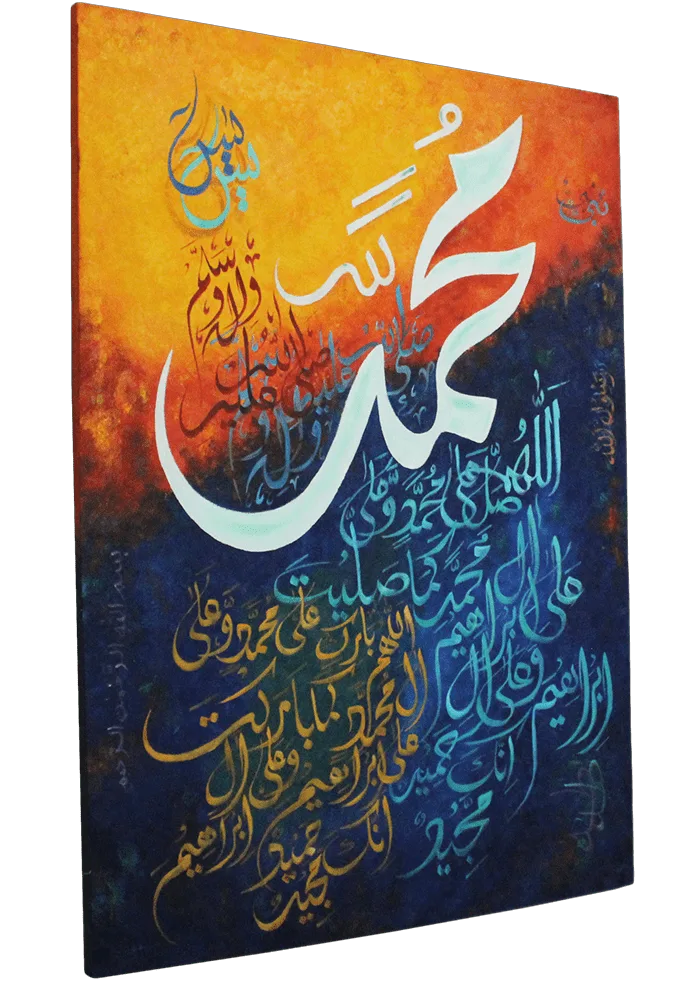 مُحَمَّد
صلى الله عليه
وسلم
رسول الله
اَللّٰهُمَّ
صل على مُحَمَّدٍ وَّعلى
ال محمد كما صليت
على ابراهيم
وعلى ال ابراهيم
انك حميد
مجيد
اللهم بارك على محمد وَّعلى
ال محمد كما باركت
على ابراهيم وعلى ال
ابراهيم انك حميد
مجيد
بسم الله الرحمن الرحيم